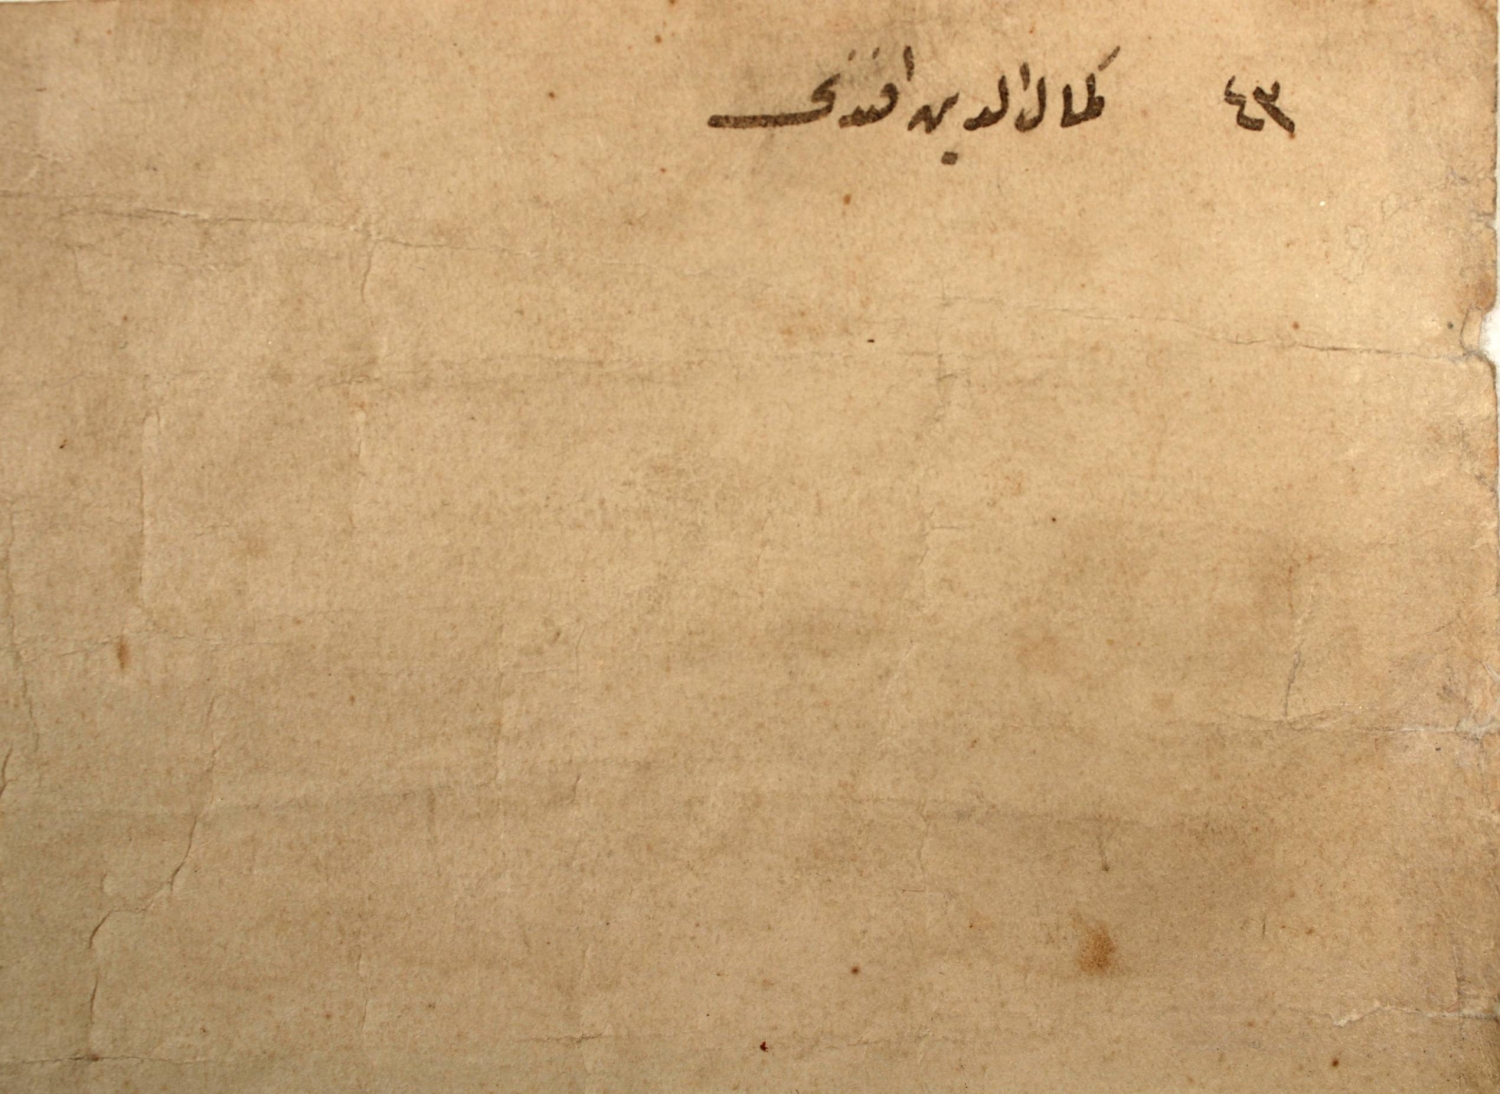 ٤٣ كمال الدين افندى